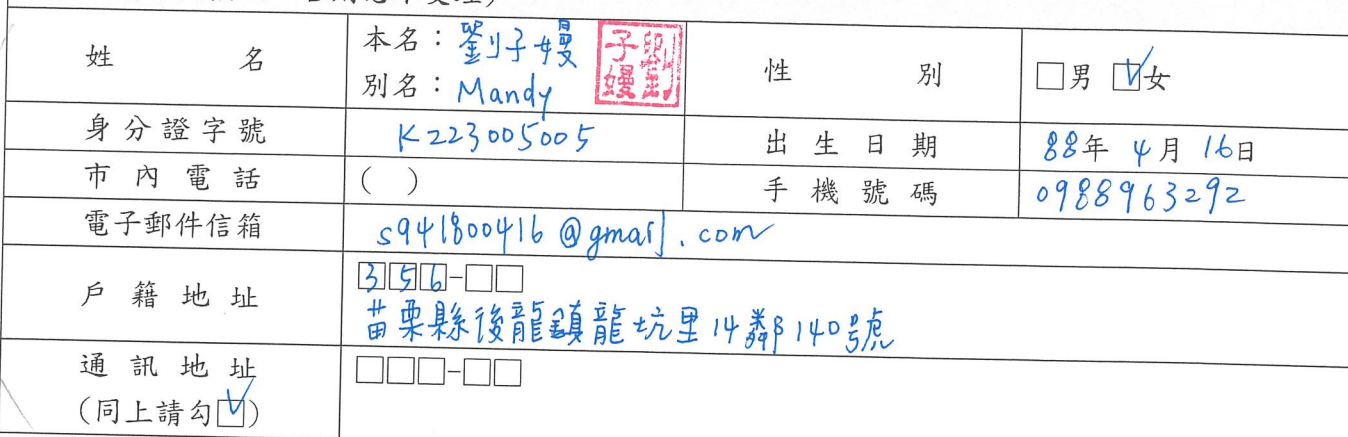 姓 名 本名：劉子嫚 子劉嫚 性 別 □男 ☑女
別名：Mandy
身分證字號 K223005005 出生日期 88年 4月 16日
市內電話 ( ) 手機號碼 0988963292
電子郵件信箱 s941800416@gmail.com
戶籍地址 356-□□
苗栗縣後龍鎮龍坑里14鄰140號
通訊地址 □□□-□□
(同上請勾☑)